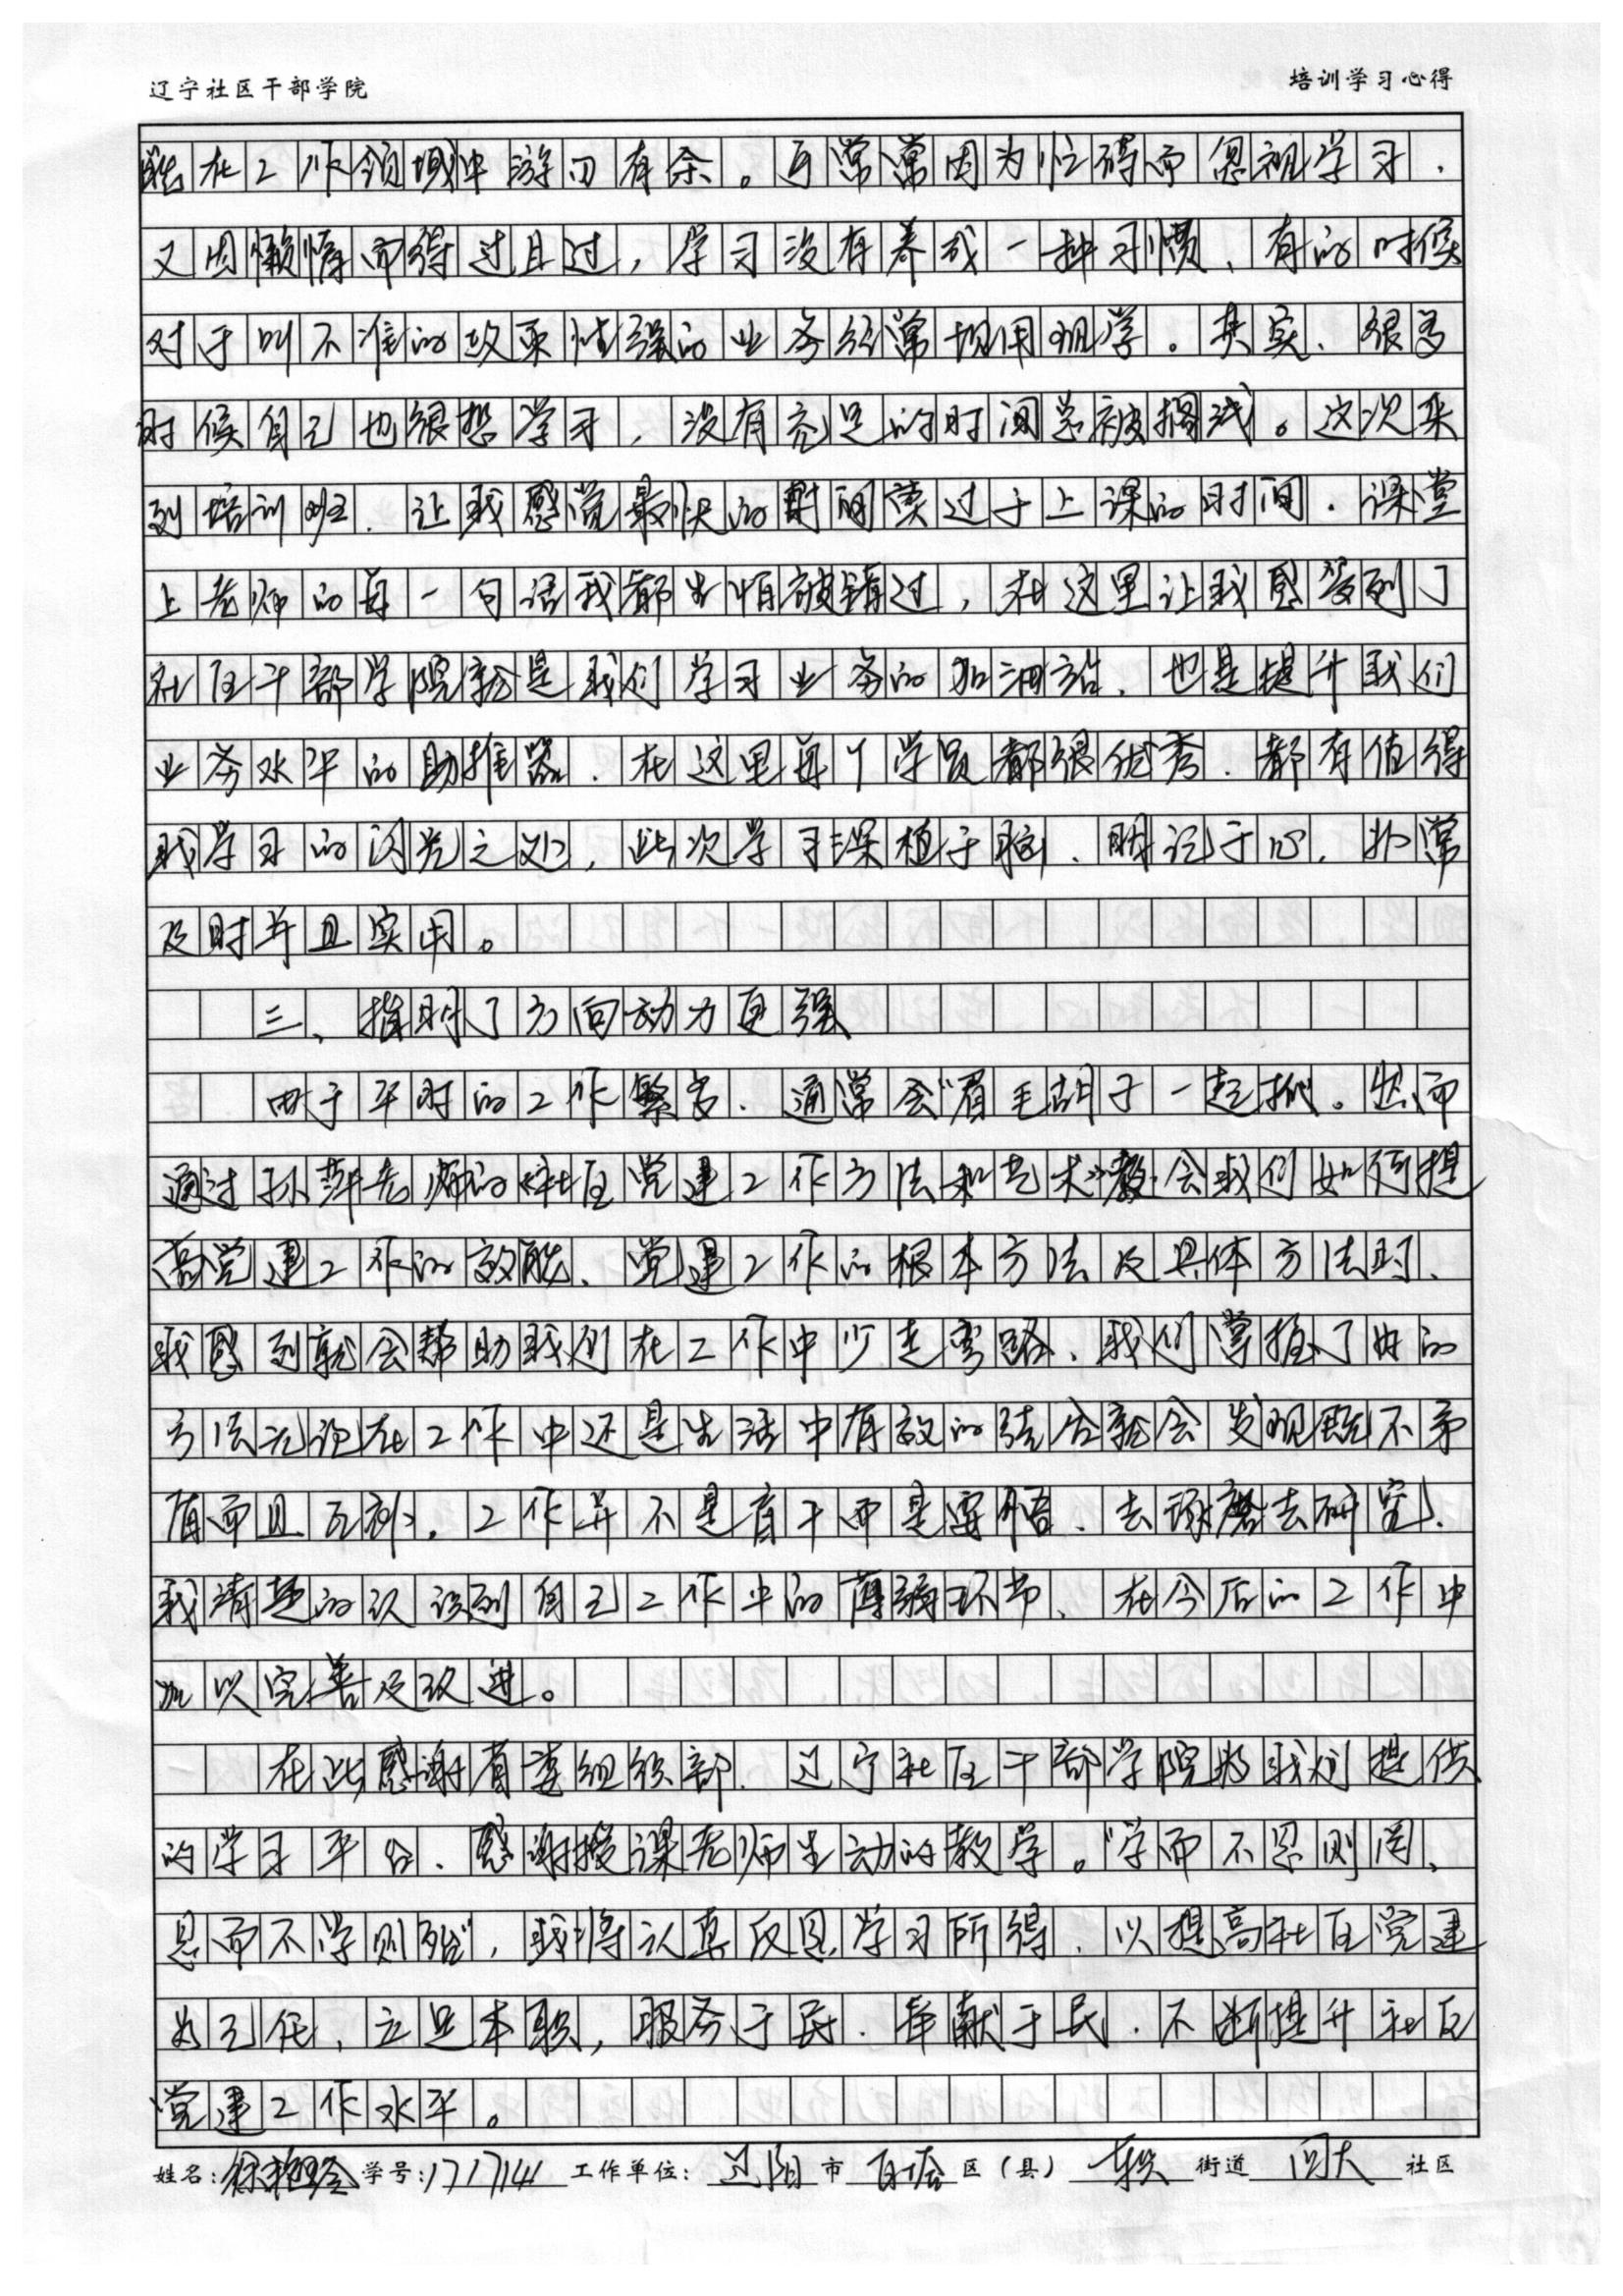 辽宁社区干部学院
培训学习心得
能在工作领域中游刃有余。可常常因为忙碌而忽视学习.
又因懒惰而得过且过,学习没有养成一种习惯、有的时候
对于叫不准的政策性强的业务经常现用现学。其实、很多
时候自己也很想学习,没有充足的时间总被搁浅。这次来
到培训班.让我感觉最快的时间莫过于上课的时间.课堂
上老师的每一句话我都生怕被错过,在这里让我感受到了
社区干部学院就是我们学习业务的加油站.也是提升我们
业务水平的助推器.在这里每个学员都很优秀.都有值得
我学习的闪光之处,此次学习深植于脑、明记于心,非常
及时并且实用。
三、指明了方向动力更强
由于平时的工作繁多.通常会"眉毛胡子一起抓。然而
通过孙萍老师的《社区党建工作方法和艺术》教会我们如何提
高党建工作的效能、党建工作的根本方法及具体方法时、
我感到就会帮助我们在工作中少走弯路、我们掌握了好的
方法无论在工作中还是生活中有效的结合就会发现既不矛
盾而且互补,工作并不是盲干而是要悟、去琢磨去研究!
我清楚的认识到自己工作中的薄弱环节、在今后的工作中
加以完善及改进。
在此感谢省委组织部.辽宁社区干部学院为我们提供
的学习平台、感谢授课老师生动的教学。"学而不思则罔、
思而不学则殆",我将认真反思学习所得.以提高社区党建
为己任,立足本职,服务于民.奉献于民.不断提升社区
党建工作水平。
姓名: 徐艳玲 学号:1717141 工作单位: 辽阳 市 白塔 区(县) 街道 社区